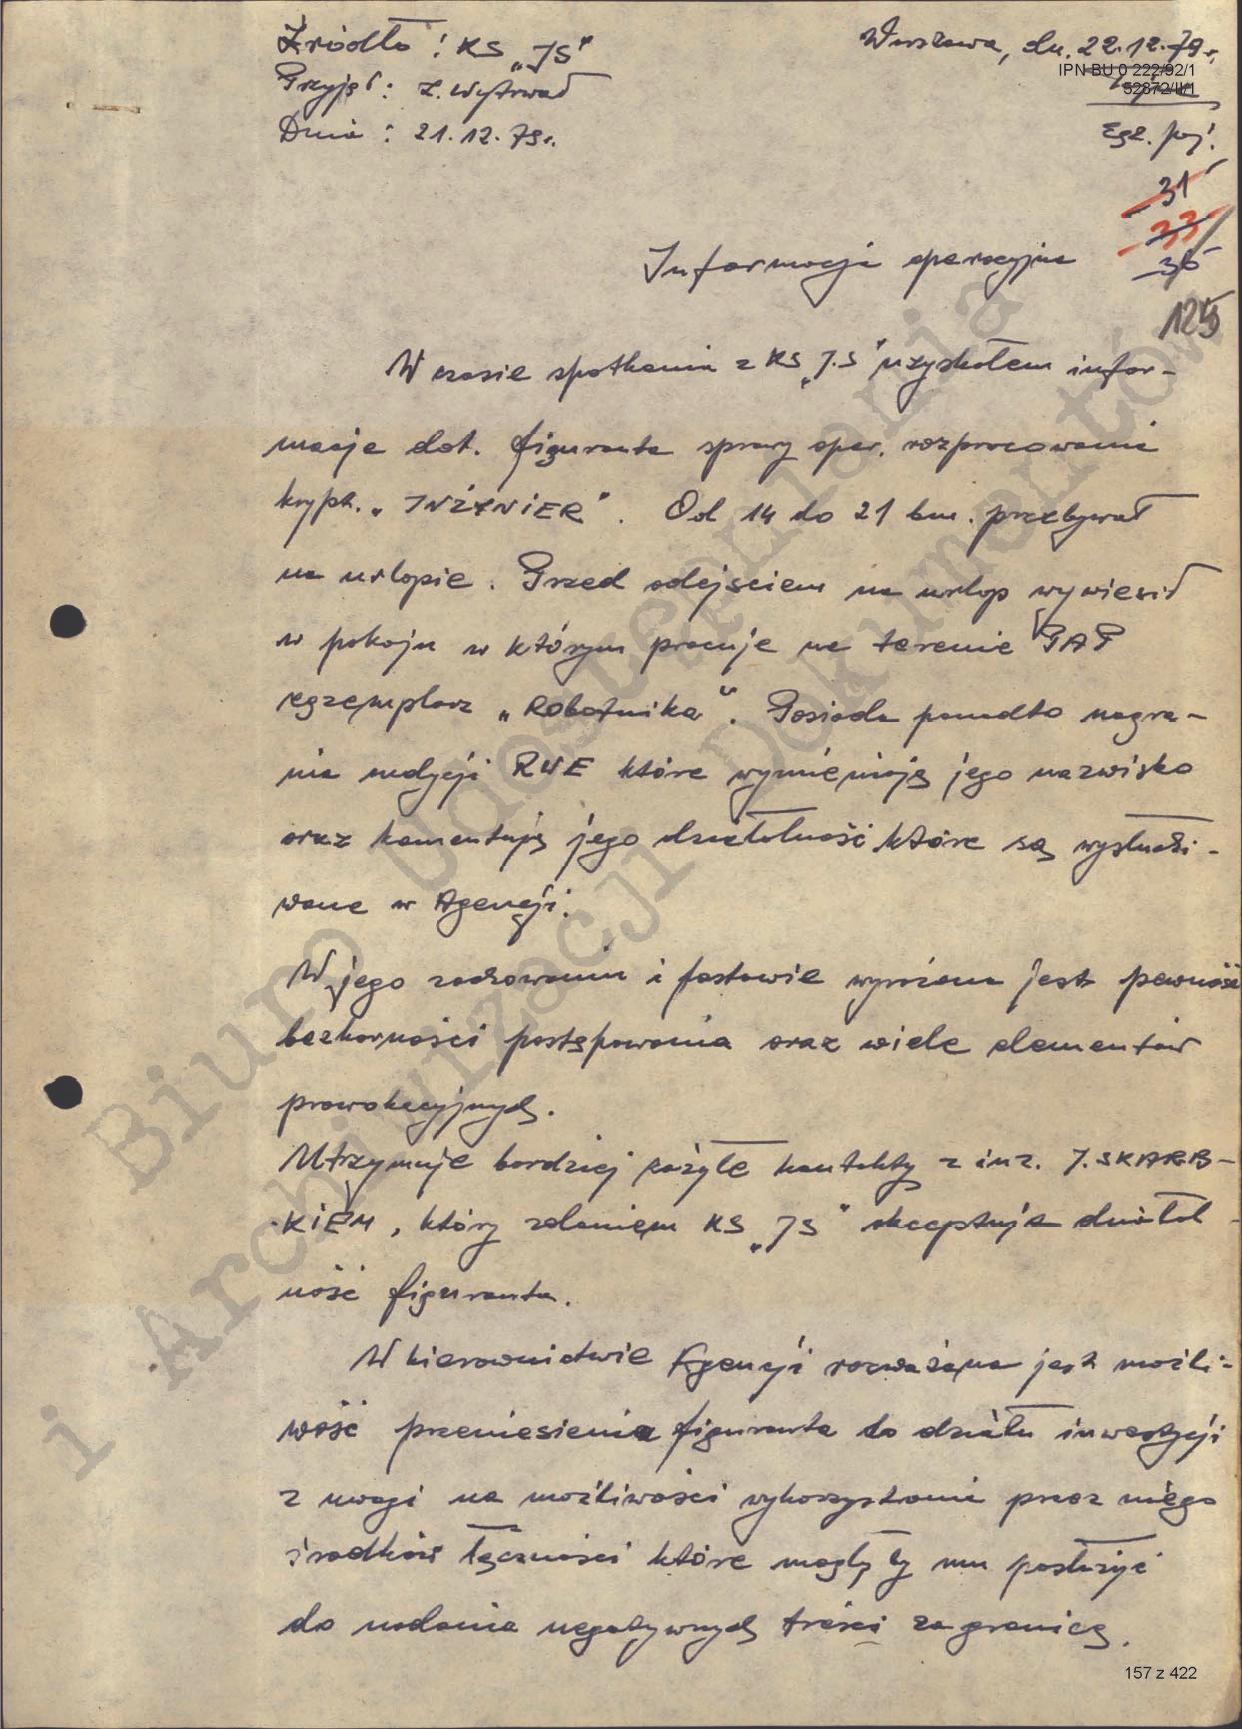 Źródło: KS „JS"
Przyjął: Z. Wytrwał
Dnia: 21.12.79r.
Warszawa, dn. 22.12.79r.
IPN BU 0 222/92/1
52872/II/1
Tajne
Egz. poj.
31
33
36
125
Informacja operacyjna
W czasie spotkania z KS „J.S" uzyskałem infor-
macje dot. figuranta sprawy oper. rozpracowania
krypt. „INŻYNIER". Od 14 do 21 bm. przebywał
na urlopie. Przed odejściem na urlop wywiesił
w pokoju w którym pracuje na terenie PAP
egzemplarz „Robotnika". Posiada ponadto nagra-
nia audycji RWE które wymieniają jego nazwisko
oraz komentują jego działalność, które są wysłuchi-
wane w Agencji.
W jego zachowaniu i postawie wyrażana jest pewność
bezkarności postępowania oraz wiele elementów
prowokacyjnych.
Utrzymuje bardziej zażyłe kontakty z inż. J. SKARB-
KIEM, który zdaniem KS „JS" akceptuje działal-
ność figuranta.
W kierownictwie Agencji rozważana jest możli-
wość przeniesienia figuranta do działu inwestycji
z uwagi na możliwości wykorzystania przez niego
środków łączności które mogłyby mu posłużyć
do nadania negatywnych treści zagranicę.
Biuro Udostępniania
i Archiwizacji Dokumentów
157 z 422